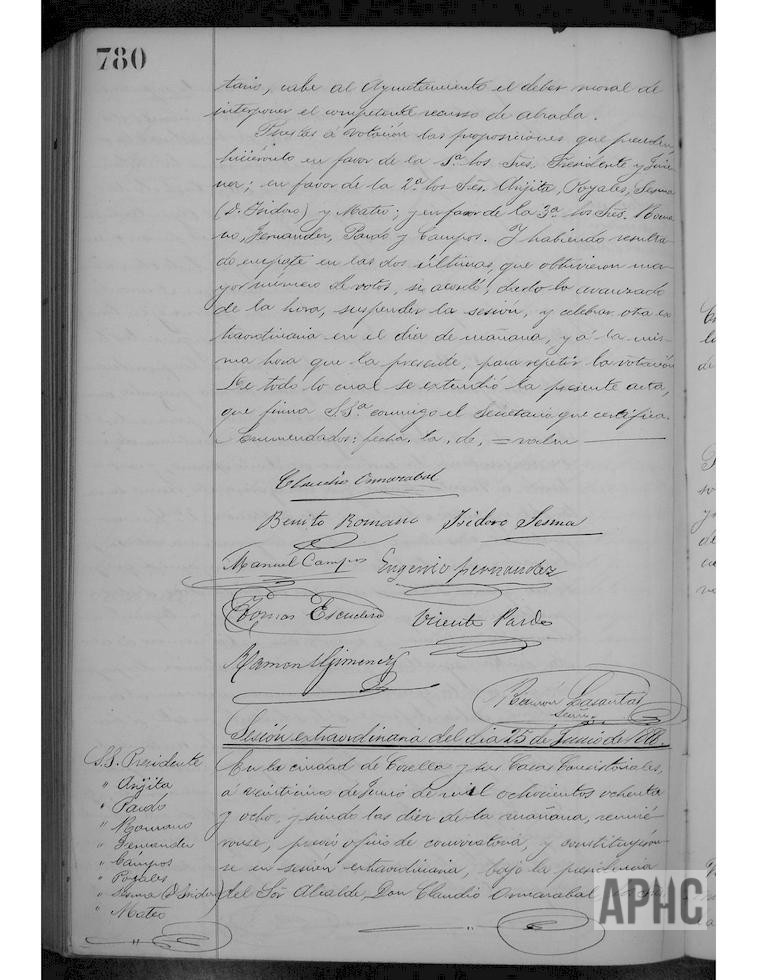 780
tario, cabe al Ayuntamiento el deber moral de
interponer el competente recurso de alzada.
Puestas á votación las proposiciones que preceden
hiciéronlo en favor de la 1ª los Sres. Presidente y Jime-
nez; en favor de la 2ª los Sres. Arijita, Poyales, Sesma
(D. Isidoro) y Mateo; y en favor de la 3ª los Sres. Roma-
no, Fernandez, Pardo y Campos. Y habiendo resulta-
do empate en las dos últimas, que obtuvieron ma-
yor número de votos, se acordó, dado lo avanzado
de la hora, suspender la sesión, y celebrar otra ex-
traordinaria en el día de mañana, y á la mis-
ma hora que la presente, para repetir la votación
De todo lo cual se extendió la presente acta,
que firma S.Sª conmigo el Secretario que certifica.
Enmendados: fecha, la, de, = valen
Claudio Onnarabal
Benito Romano Isidoro Sesma
Manuel Campos Eugenio Fernandez
Tomas Escudero Vicente Pardo
Ramon Gimenez
Ramón Lasantas
Secrio.
Sesión extraordinaria del dia 25 de Junio de 1888.
S.S. Presidente
" Arijita
" Pardo
" Romano
" Fernandez
" Campos
" Poyales
" Sesma (D. Isidoro)
" Mateo
En la ciudad de Corella y sus Casas Consistoriales,
á veinticinco de Junio de mil ochocientos ochenta
y ocho, y siendo las diez de la mañana, reunié-
ronse, previo oficio de convocatoria, y constituyéron-
se en sesión extraordinaria, bajo la presidencia
del Sor Alcalde, Don Claudio Onnarabal
APHC